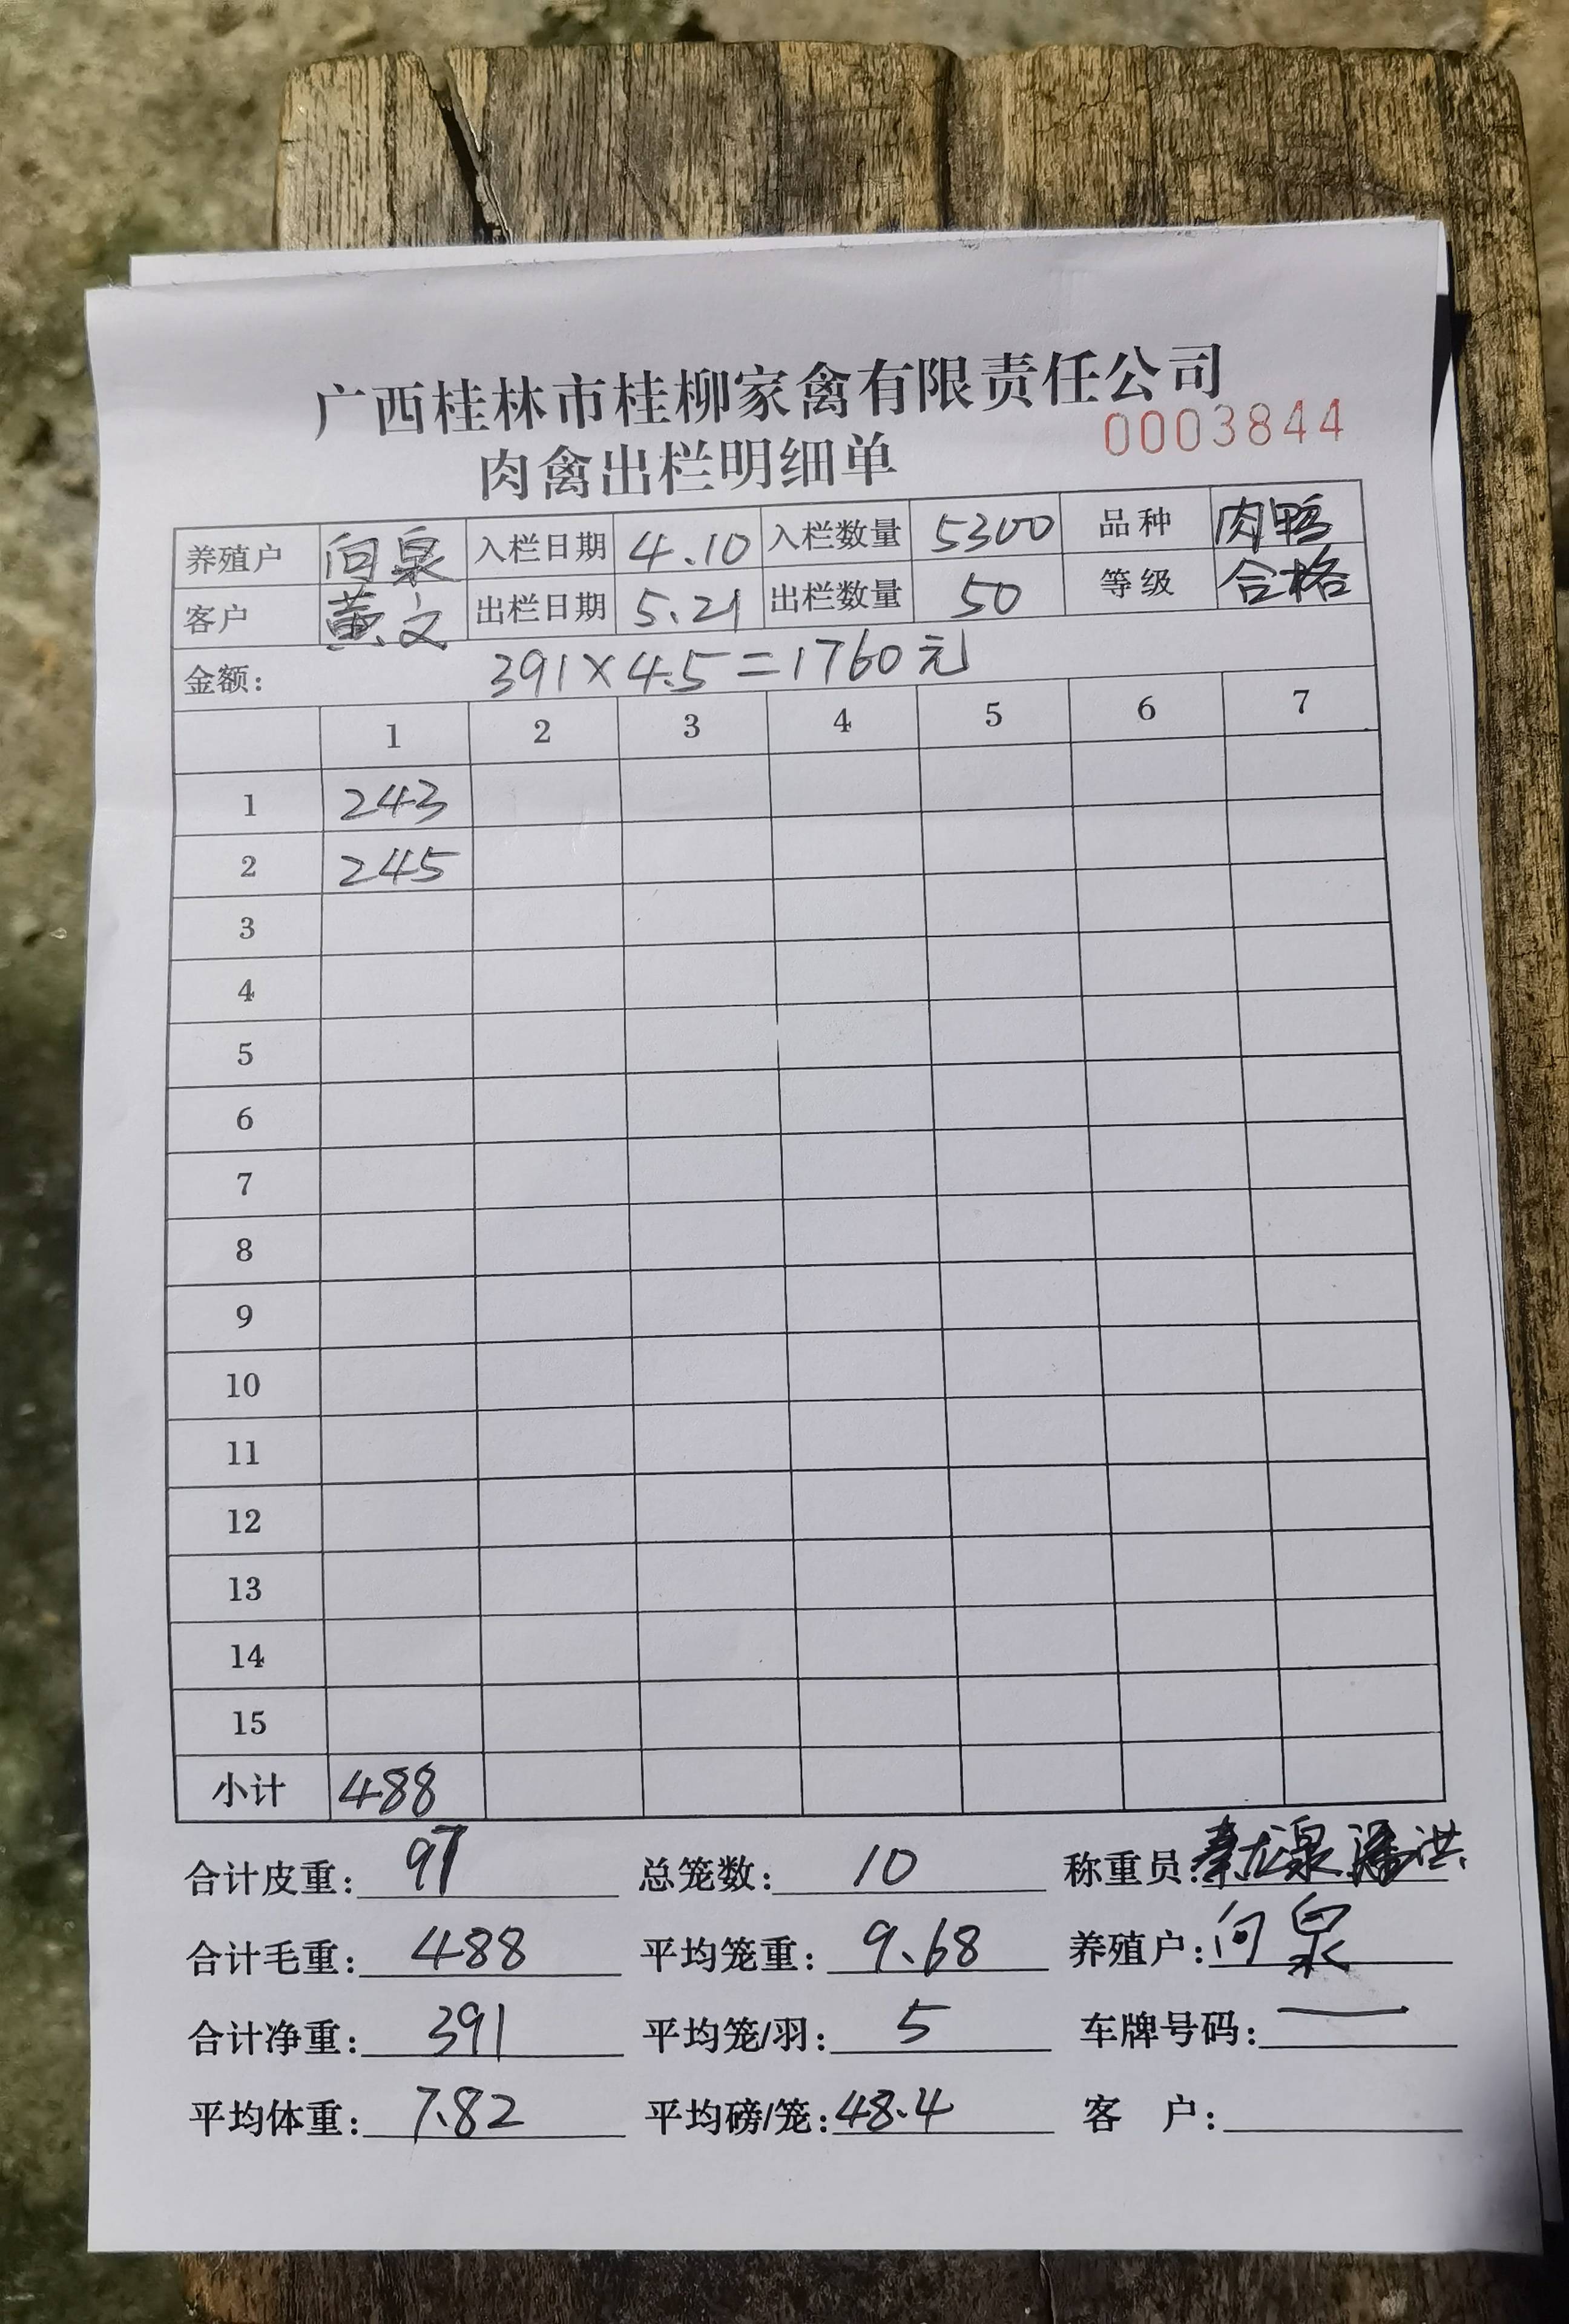 广西桂林市桂柳家禽有限责任公司
0003844
肉禽出栏明细单
养殖户 向泉 入栏日期 4.10 入栏数量 5300 品种 肉鸭
客户 黄文 出栏日期 5.21 出栏数量 50 等级 合格
金额: 391×4.5=1760元
1 2 3 4 5 6 7
1 243
2 245
3
4
5
6
7
8
9
10
11
12
13
14
15
小计 488
合计皮重: 97 总笼数: 10 称重员: 秦龙泉 潘洪
合计毛重: 488 平均笼重: 9.68 养殖户: 向泉
合计净重: 391 平均笼/羽: 5 车牌号码: —
平均体重: 7.82 平均磅/笼: 48.4 客 户: